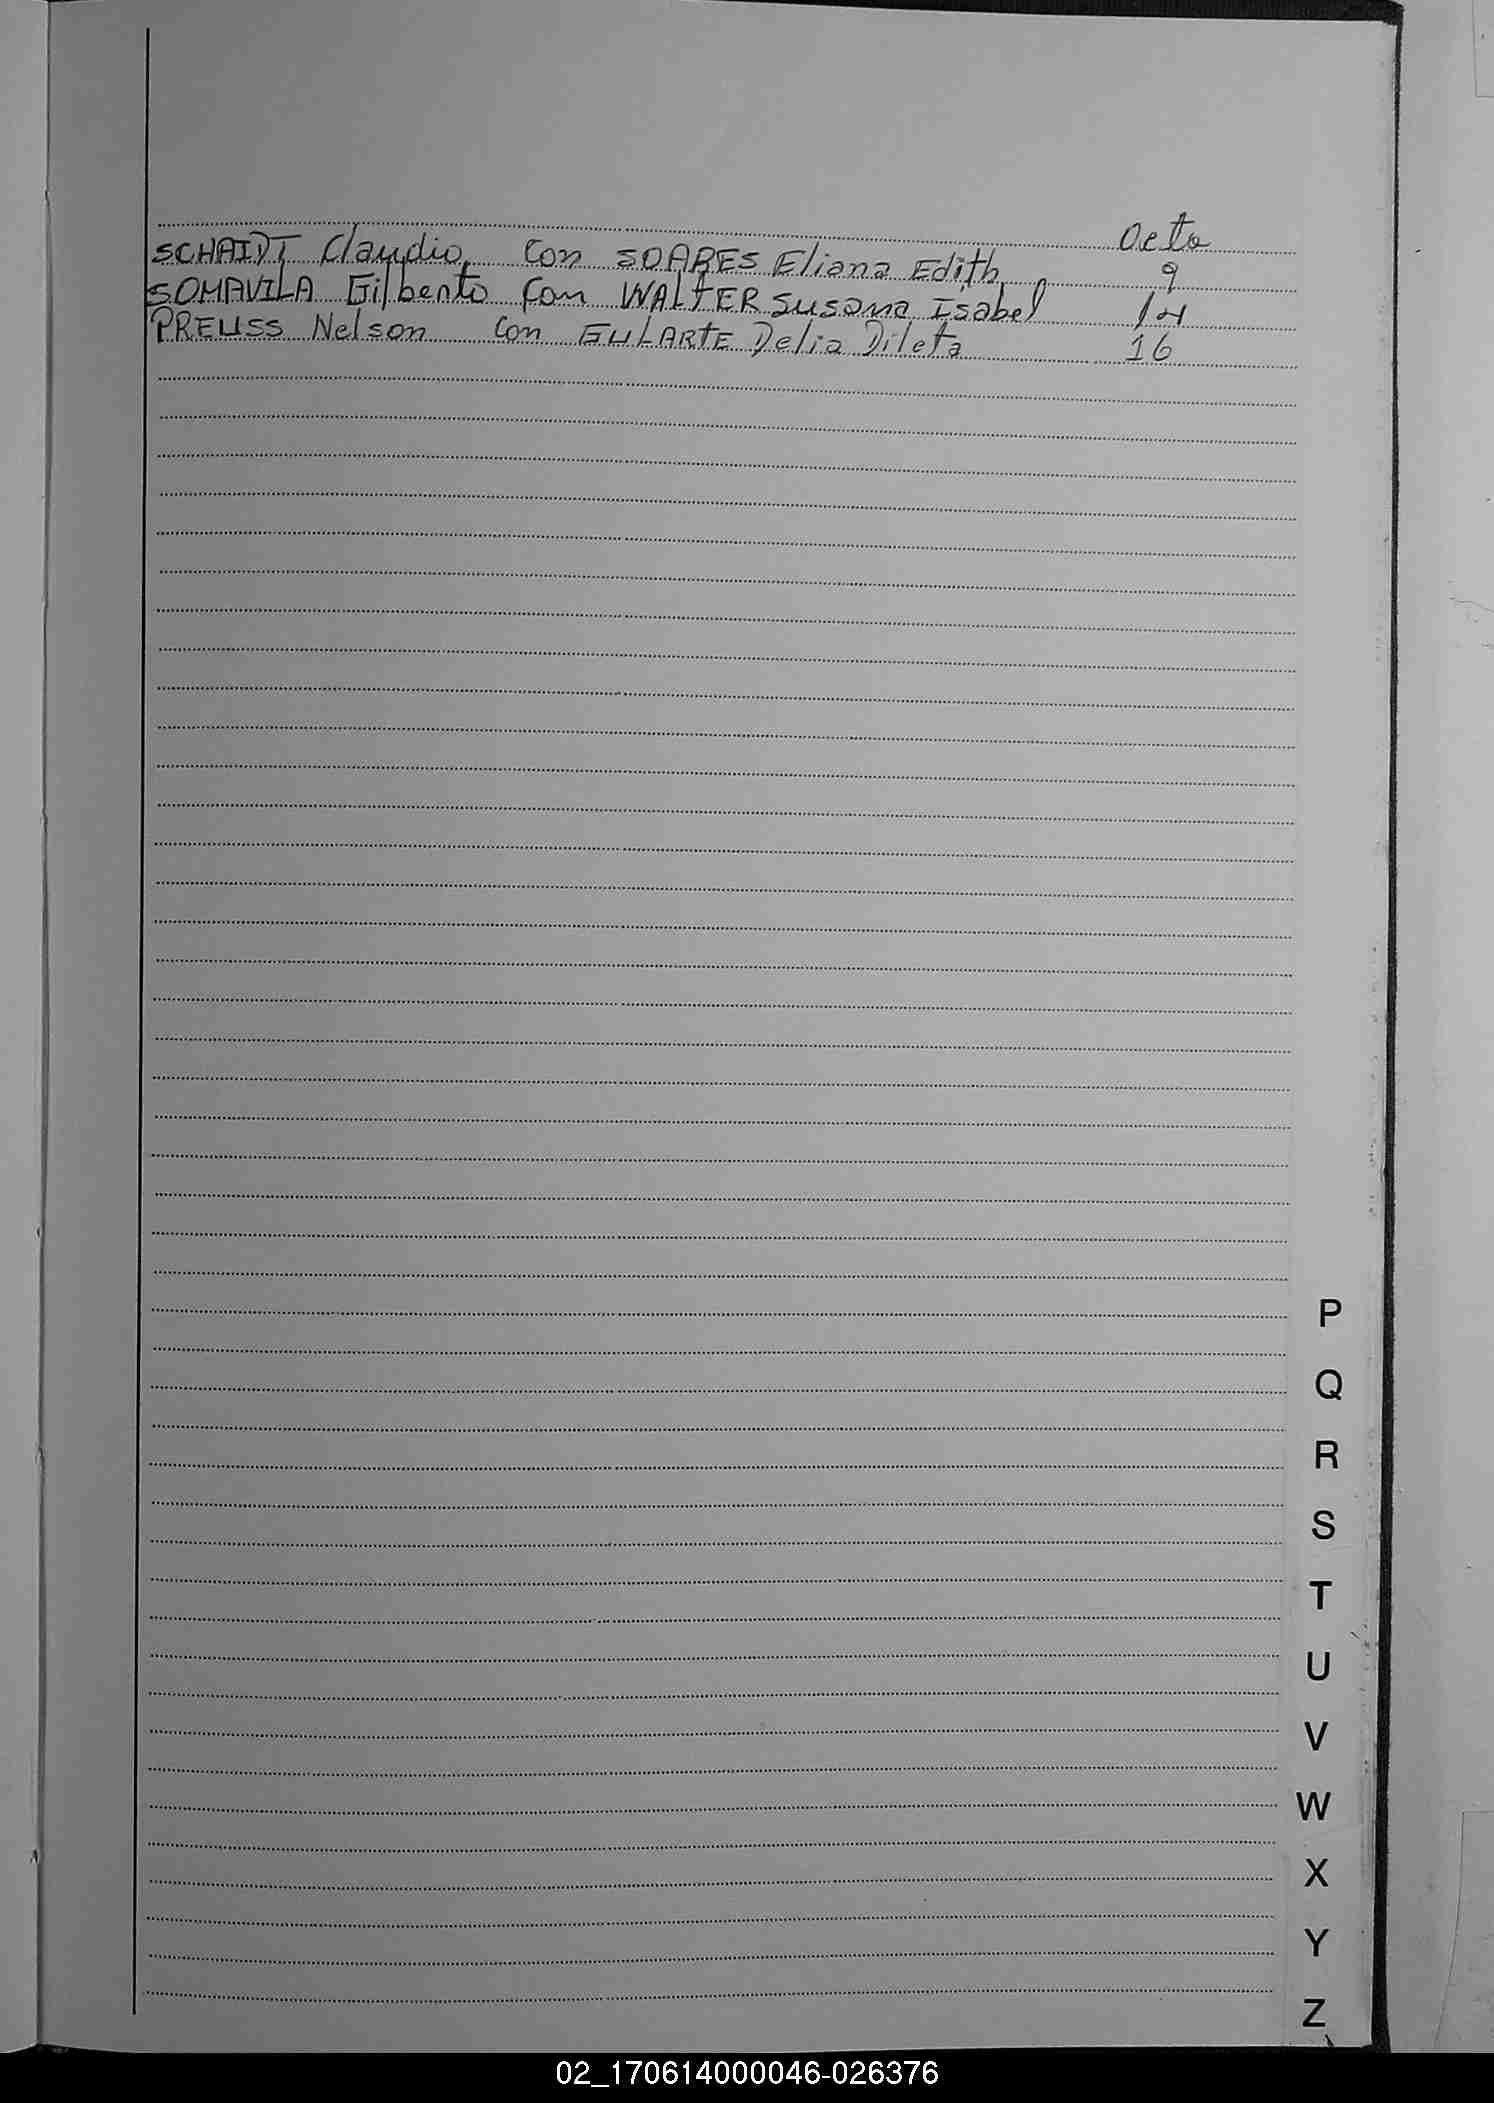 Acta
SCHAIDT Claudio con SOARES Eliana Edith 9
SOMAVILA Gilberto con WALTER Susana Isabel 14
PREUSS Nelson con GULARTE Delia Dileta 16
P
Q
R
S
T
U
V
W
X
Y
Z
02_170614000046-026376